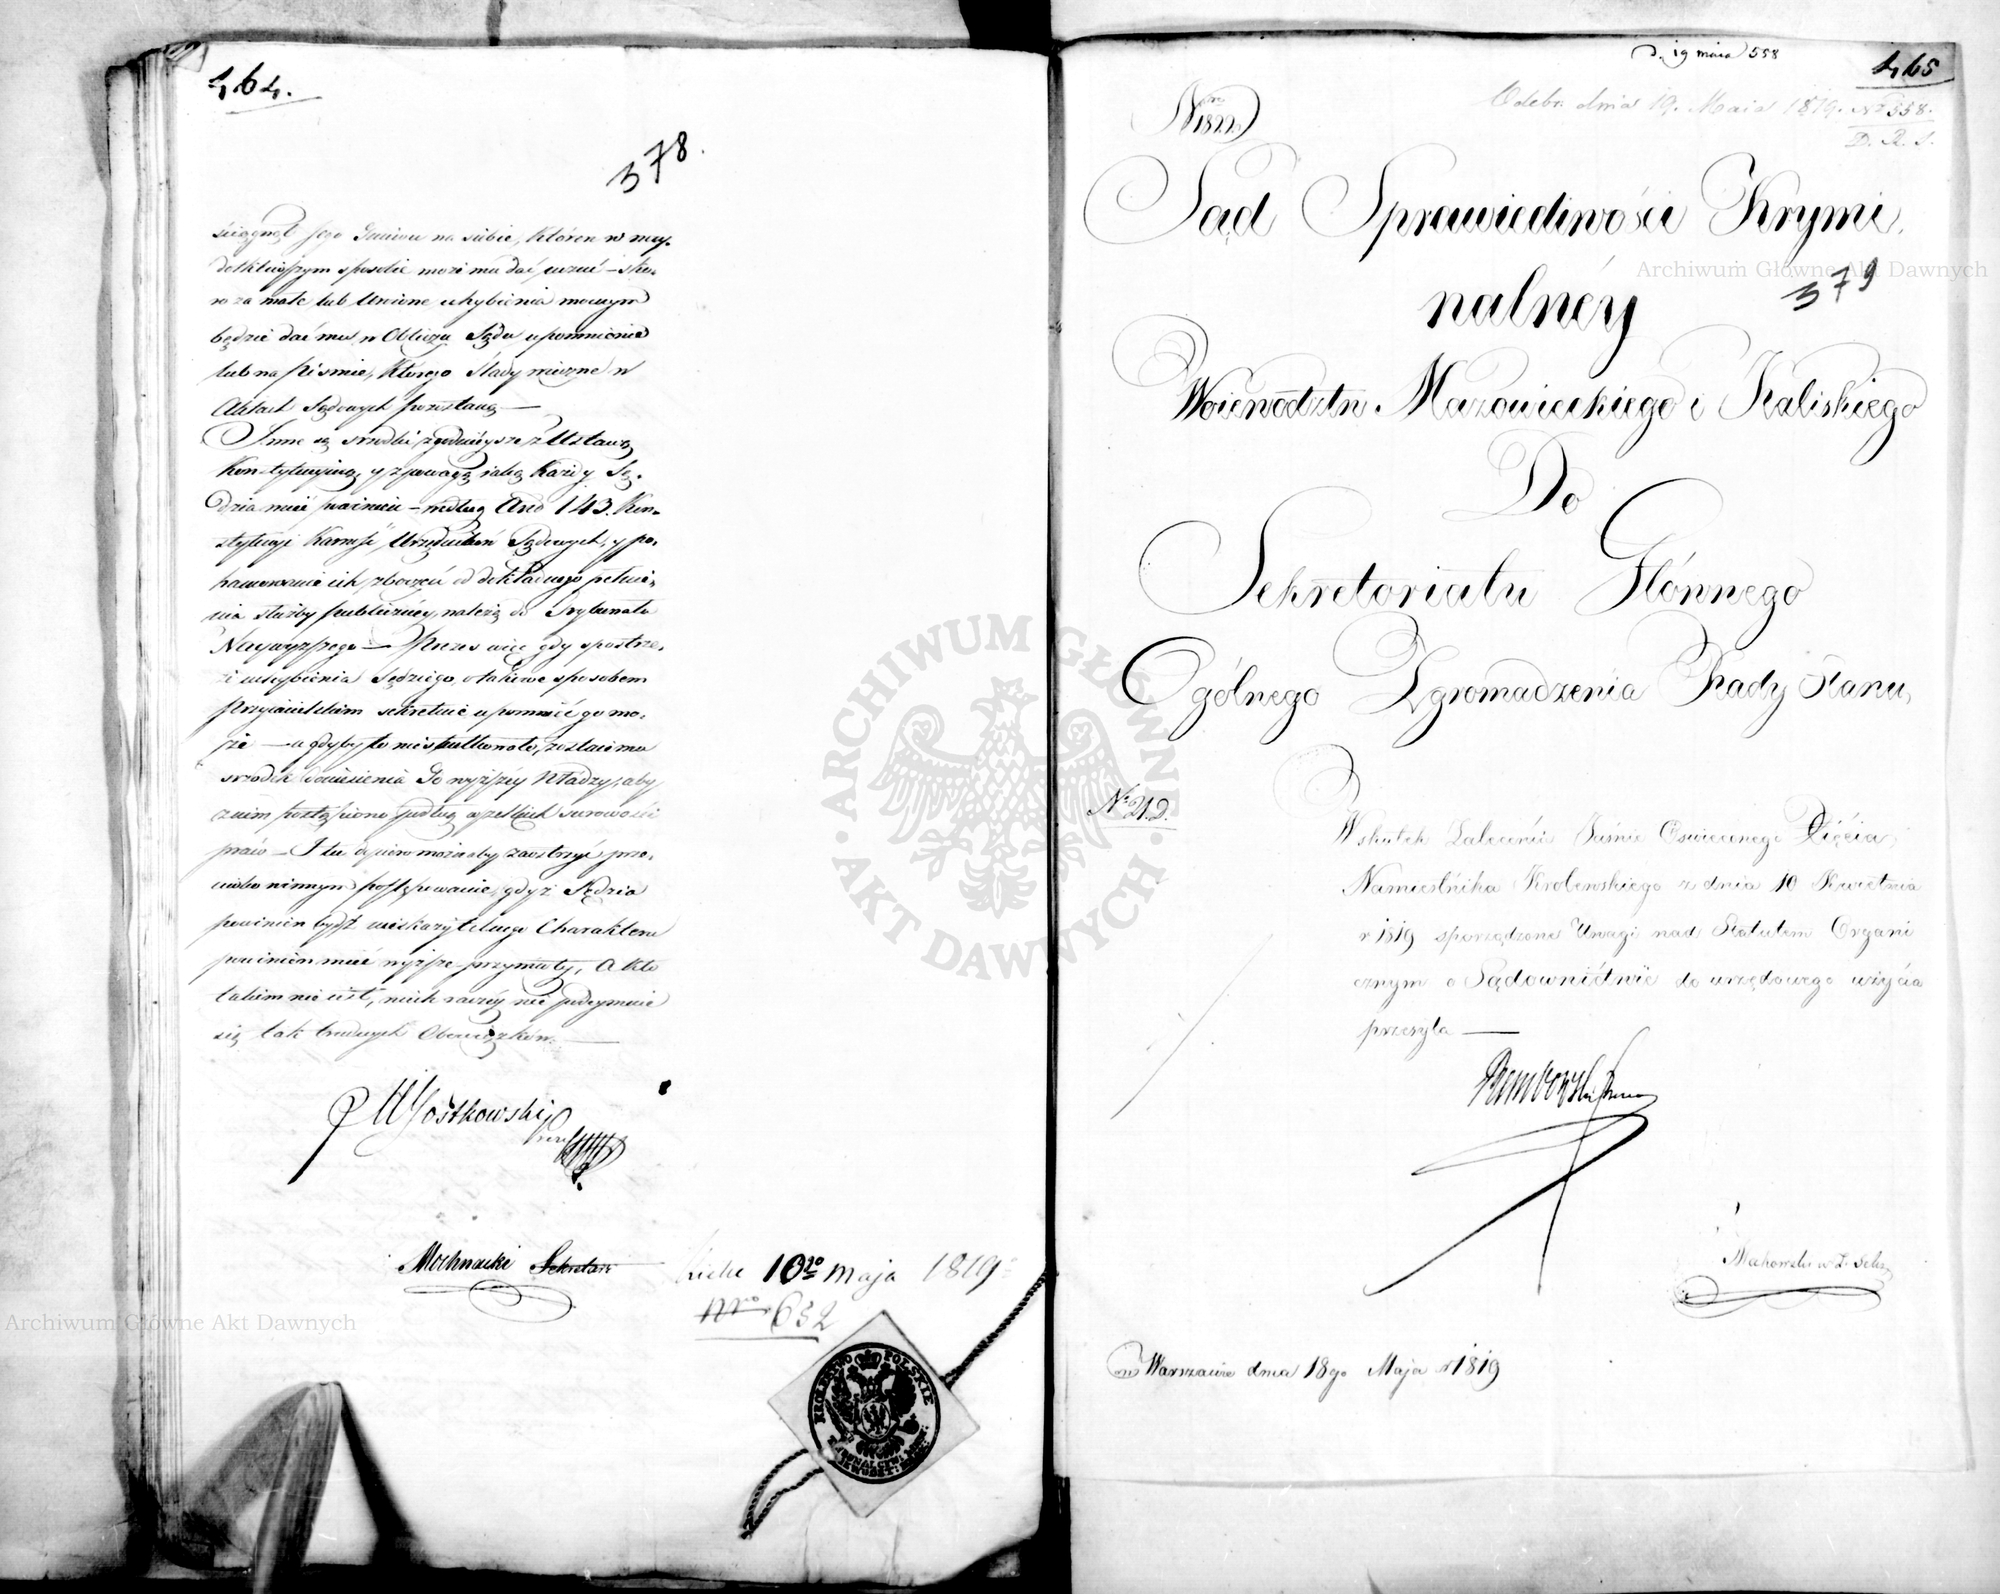 464.
378.
ściągnął jego Gniewu na siebie, któren w nay-
dotkliwszym sposobie może mu dać uczuć – sko-
ro za małe lub Urojone uchybienia mocnym
będzie dać mu w Obliczu Sądu upomnienie
lub na piśmie, którego ślady wieczne w
Aktach Sądowych pozostaną —
Inne są srzodki zgodnieysze z Ustawą
Konstytucyiną, y z powagą jaką każdy Sę-
dzia mieć powinien – według Art 143. Kon-
stytucyi karność Urzędników Sądowych, y po-
hamowanie ich zboczeń od dokładnego pełnie-
nia służby publiczney, należą do Trybunału
Naywyższego — Prezes więc gdy spostrze-
że uchybienia Sędziego, o takowe sposobem
Przyiacielskim sekretnie upomnieć go mo-
że — a gdyby to nie skutkowało, zostaie mu
srzodek doniesienia do wyższey Władzy, aby
z nim postąpiono podług wszelkich surowości
praw — I tu dopiero można by zaostrzyć prze-
ciwko winnym postępowanie, gdyż Sędzia
powinien bydź nieskazitelnego Charakteru
powinien mieć wyższe przymioty, A kto
takim nie iest, niech raczey nie podeymuie
się tak trudnych Obowiązków. —
Gostkowski
Prezes
Mochnacki Sekretarz
10go maja 1819
Nro 632
KROLESTWO POLSKIE
d. 19 maia 558
465
Odebr. dnia 19. Maia 1819. No 558.
D. R. S.
379
Sąd Sprawiedliwości Krymi-
nalnéy
Woiewództw Mazowieckiego i Kaliskiego
Do
Sekretariatu Głównego
Ogólnego Zgromadzenia Rady Stanu,
No 212.
W skutek Zalecenia Jaśnie Oświeconego Xięcia
Namiestnika Królewskiego z dnia 10 Kwietnia
r 1819 sporządzone Uwagi nad Statutem Organi
cznym o Sądownictwie do urzędowego użycia
przesyła —
Rembowski Prezes
Makowski w Z. Sekr.
w Warszawie dnia 18go Maja r 1819
Archiwum Główne Akt Dawnych
ARCHIWUM GŁÓWNE AKT DAWNYCH
Archiwum Główne Akt Dawnych